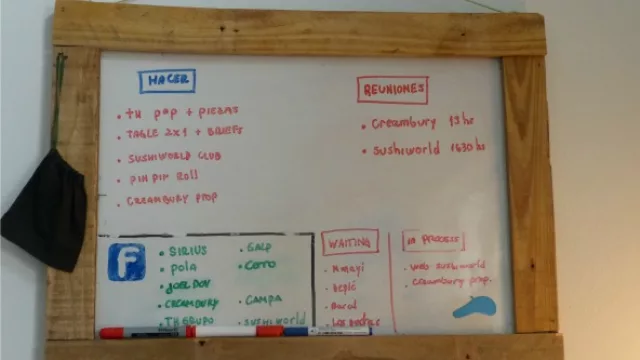 HACER
• TABLE 2x1 + BRIEFS
• SUSHIWORLD CLUB
• PIN PIM Roll
• CREAMBURY PROP
REUNIONES
• Creambury 13 hs
• Sushiworld 1630 hs
F
• SIRIUS
• Pola
• JOEL DOY
• CREAMBURY
• TH GRUPO
• GALP
• CAMPA
• SUSHIWORLD
WAITING
IN PROCESS
• Web sushiworld
• Creambury prop.